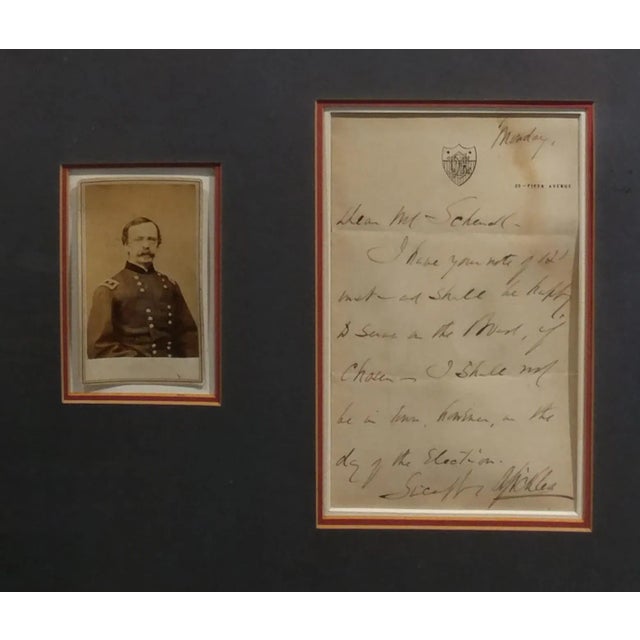 Monday,
23 - FIFTH AVENUE
Dear Mr
I have your note of 12'
inst - and shall be happy
to serve on the Board, if
chosen - I shall not
be in town, however, on the
day of the Election.
Sickles